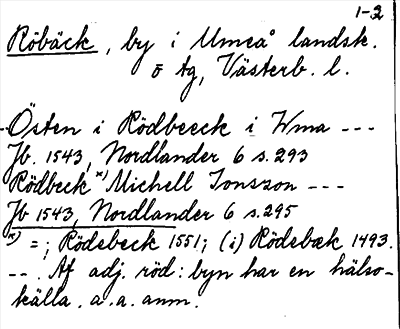 1-2
Röbäck, by i Umeå landsk.
o tg, Västerb. l.
Östen i Rödbeeck i Wma ---
Jb. 1543, Nordlander 6 s. 293
Rödbeck *) Michell Jonszon ---
Jb 1543, Nordlander 6 s. 295
*) = ; Rödebeck 1551; (i) Rödebæk 1493.
--. Af adj. röd: byn har en hälso-
källa. a. a. anm.